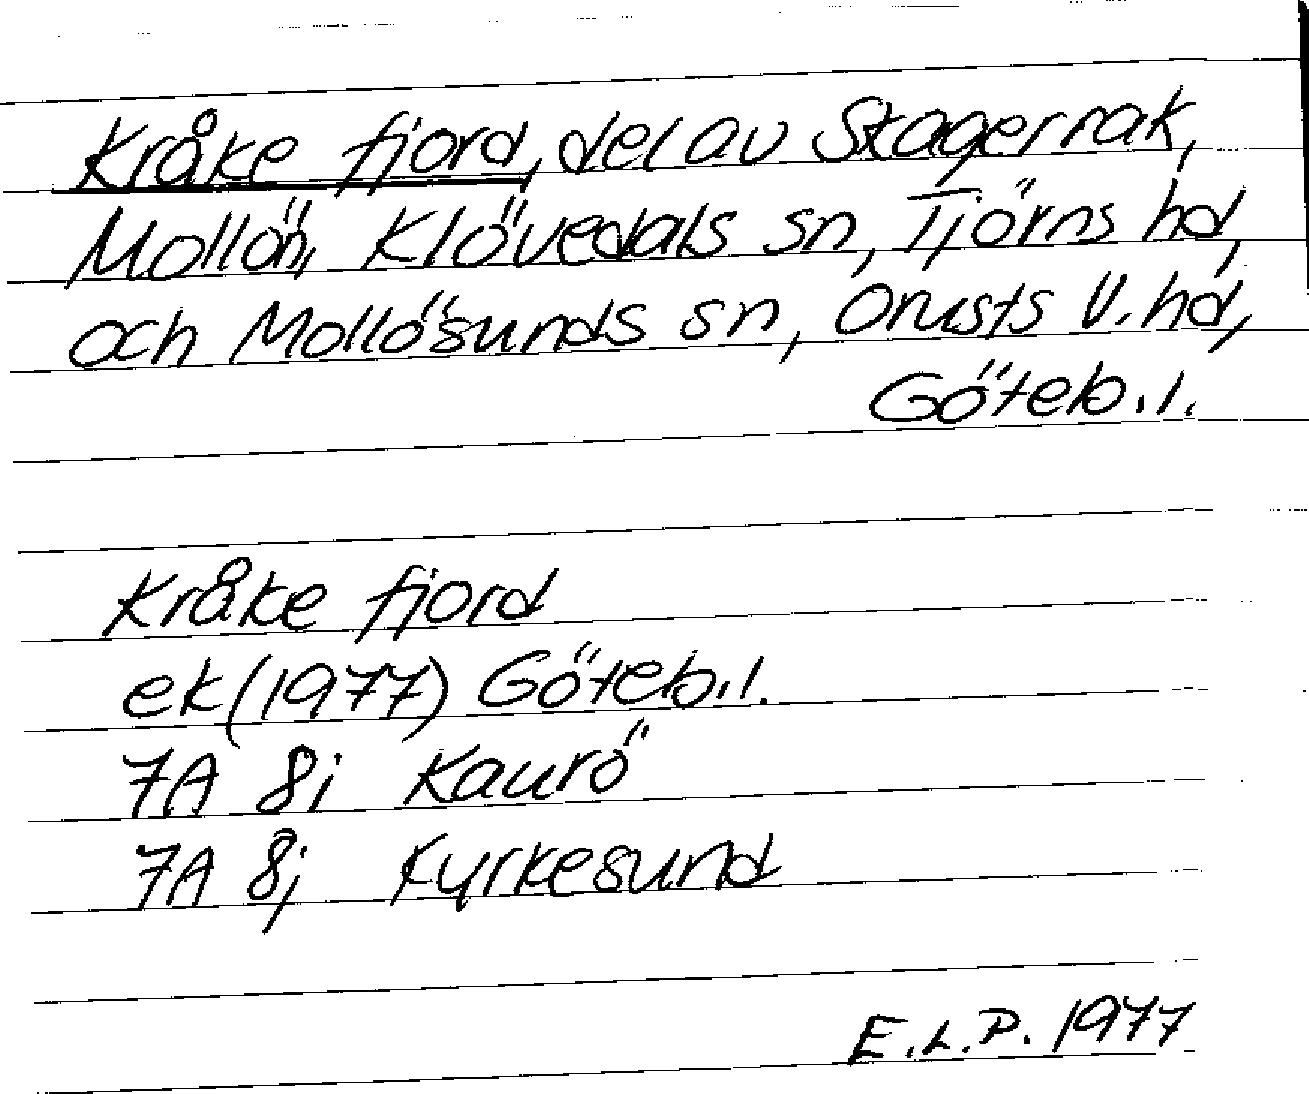 Kråke fjord, del av Skagerrak,
Mollön, Klövedals sn, Tjörns hd,
och Mollösunds sn, Orusts V. hd,
Göteb. l.
Kråke fjord
ek (1977) Göteb. l.
7A 8i Kaurö
7A 8j Kyrkesund
E.L.P. 1977